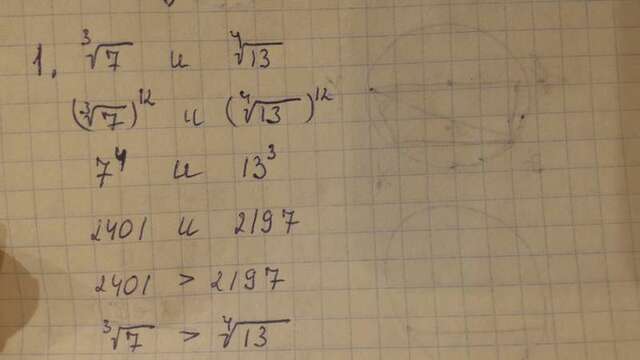 1. ∛7 и ∜13
(∛7)¹² и (∜13)¹²
7⁴ и 13³
2401 и 2197
2401 > 2197
∛7 > ∜13